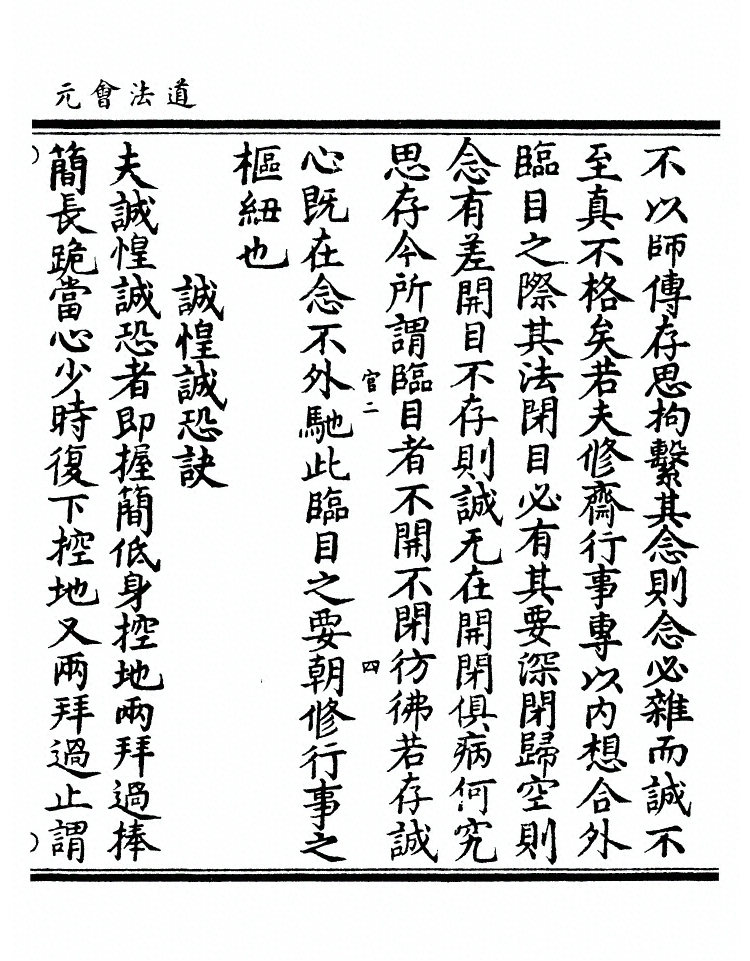 道法會元
不以師傳存思拘繫其念則念必雜而誠不
至真不格矣若夫修齋行事專以内想合外
臨目之際其法閉目必有其要深閉歸空則
念有差開目不存則誠无在開閉俱病何究
思存今所謂臨目者不開不閉彷彿若存誠
官二
四
心既在念不外馳此臨目之要朝修行事之
樞紐也
誠惶誠恐訣
夫誠惶誠恐者即握簡低身控地兩拜過捧
簡長跪當心少時復下控地又兩拜過止謂